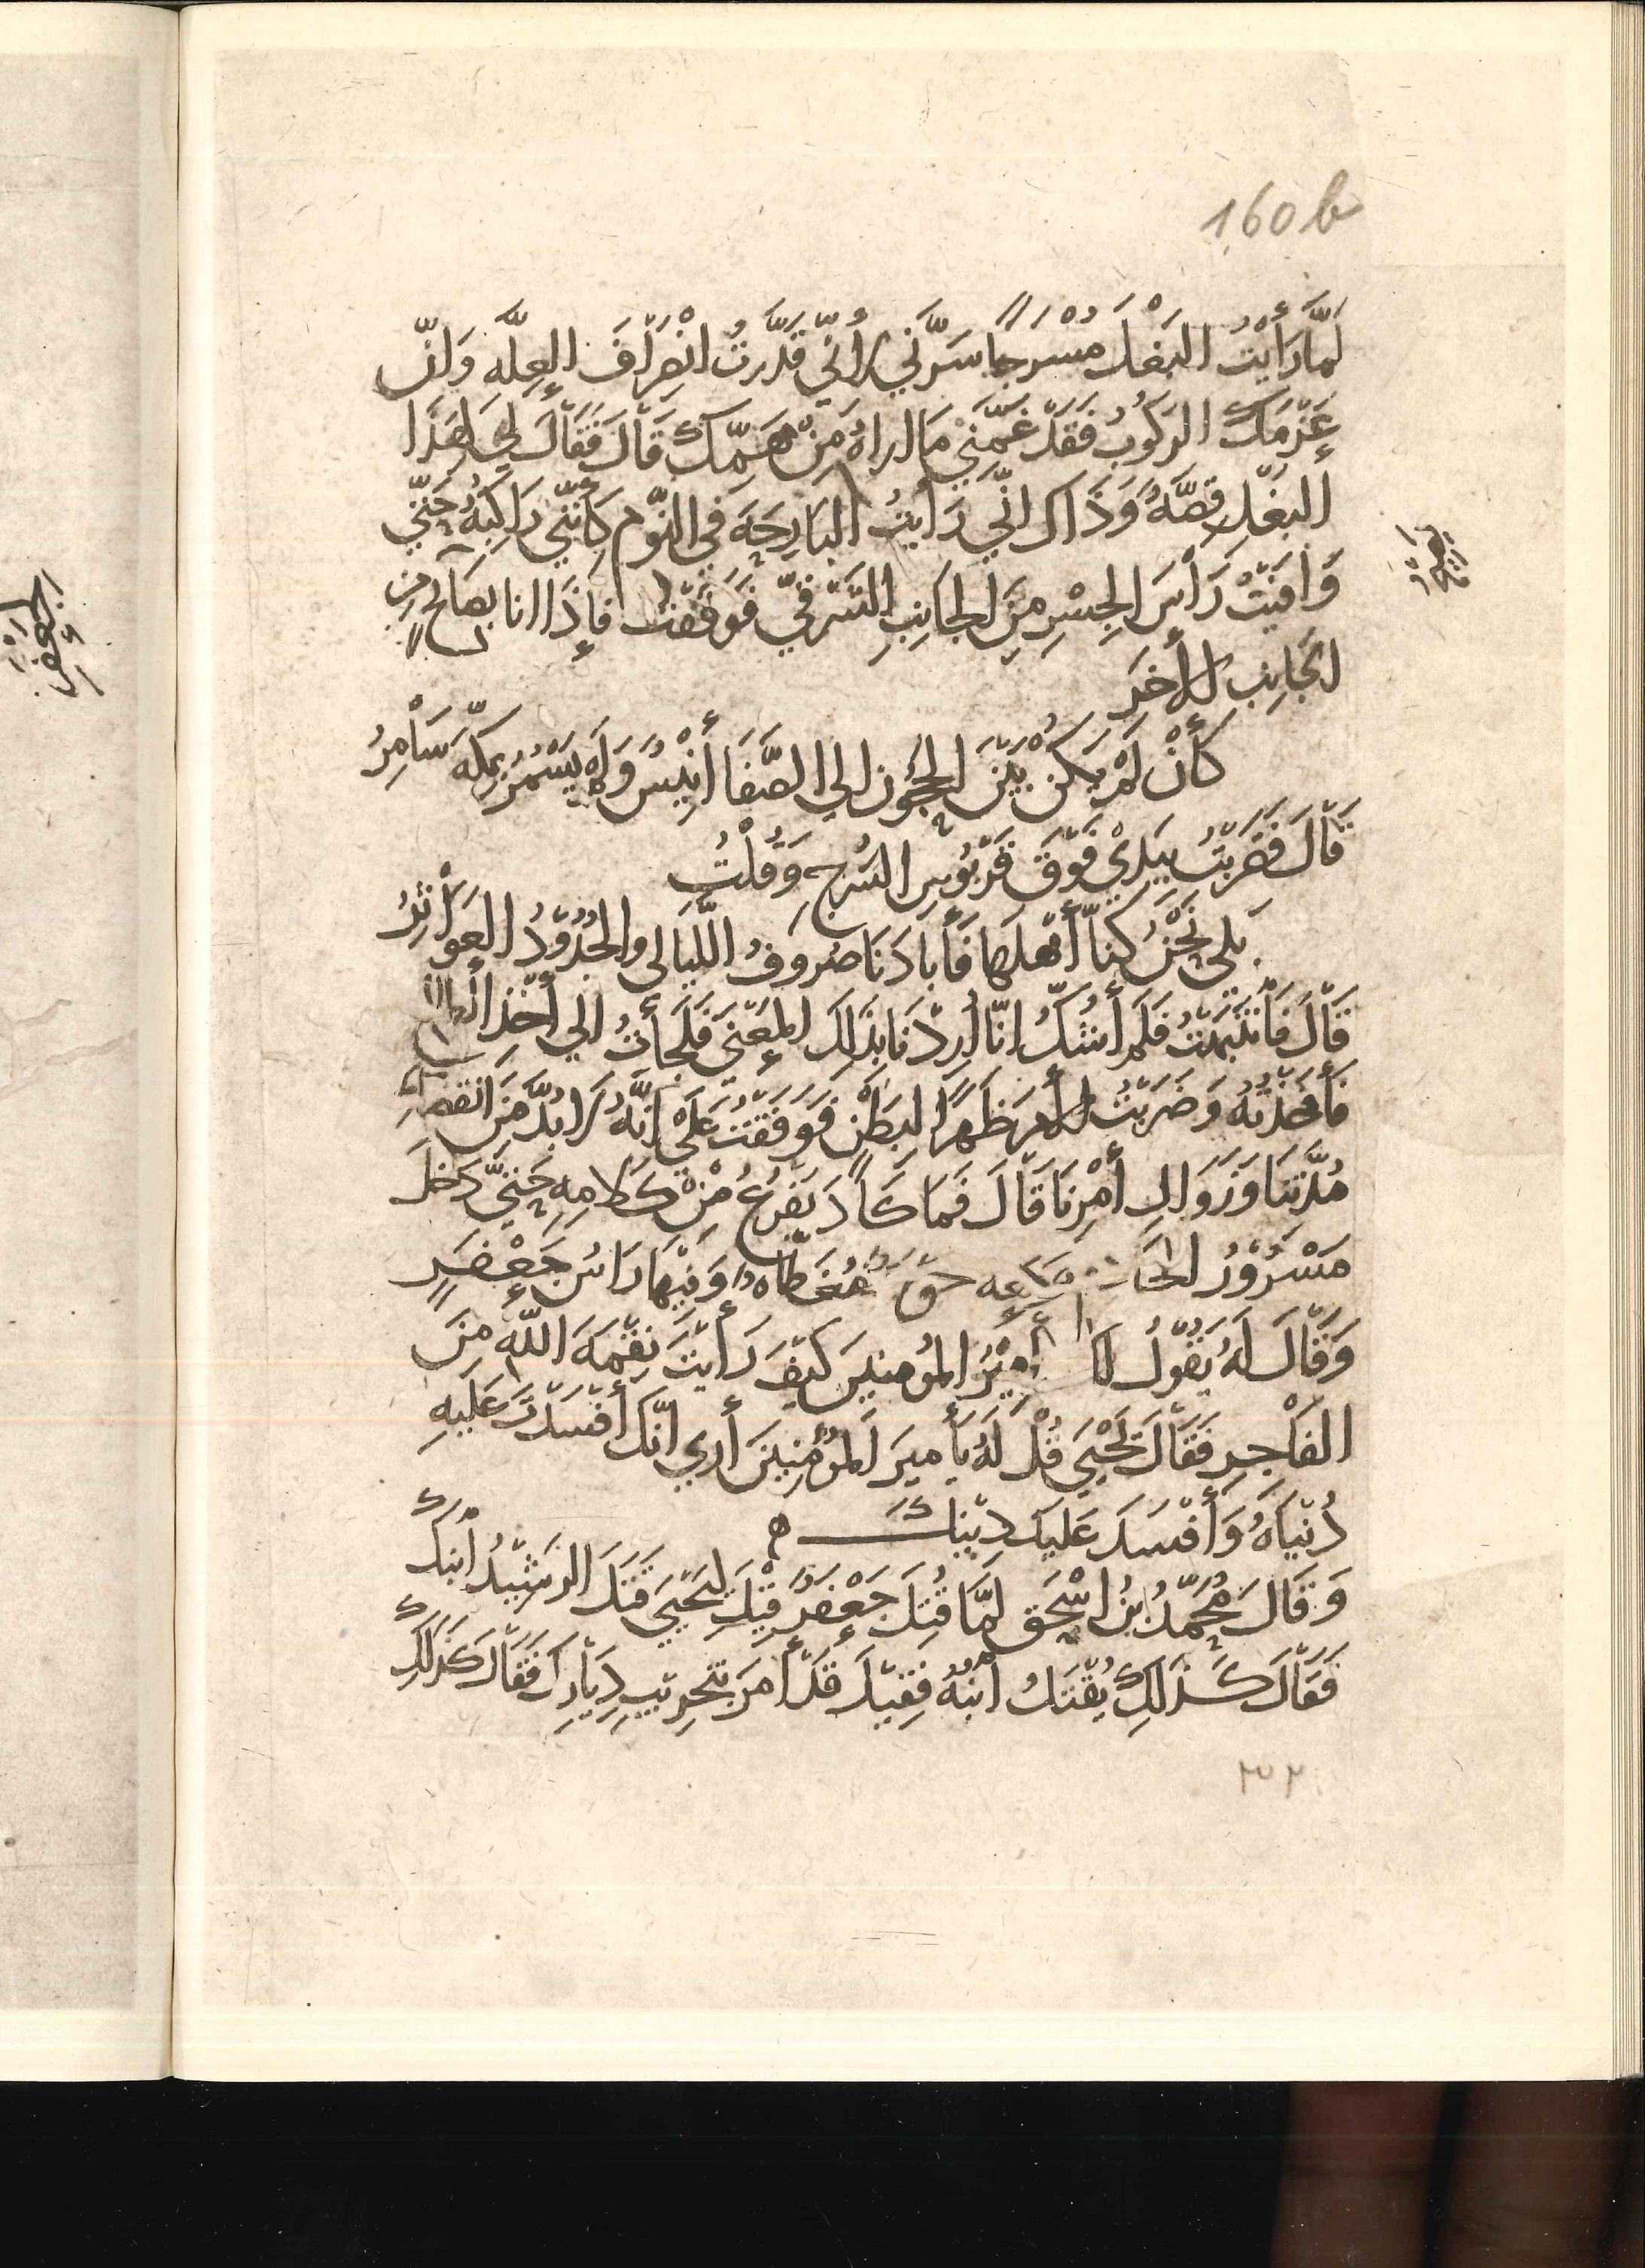 160b
لَمَّا رَأَيْتُ البَغْلَ مُسْرَجًا سَرَّنِي لأَنِّي قَدَّرتُ انْصِرَافَ العِلَّةِ وَانّ
عَزْمَكَ الرَكُوبُ فَقَدْ غَمَّنِي مَا اراهُ مِنْ هَمِّكَ قَالَ فَقَالَ لِي لِهَذَا
البَغْلِ قِصَّةٌ وَذَاكَ انِّي رَأَيتُ البَارِحَةَ فِي النَّوْمِ كَأَنَّنِي رَاكِبُهُ حَتّي
وَافَيْتُ رَأْسَ الجِسْرِ مِنَ الجَانِبِ الشَرْقِيِّ فَوَقَفْتُ فَإِذَا انا بِصَائِحٍ مِن
الجَانِبِ الأَخَرِ
كَأَنْ لَمْ يَكُنْ بَيْنَ الحَجُونِ الي الصَّفَا أَنِيْسٌ وَلَمْ يَسْمُرْ بِمَكَّةَ سَامِرُ
قَالَ فَضَرَبْتُ بِيَدِيْ فَوْقَ قَرْبُوسِ السَرْجِ وَقُلْتُ
بَلي نَحْنُ كُنَّا أَهْلَهَا فَأَبَادَنَا صُرُوفُ اللَّيَالي والجُدُوْدُ العَوَاثِرُ
قَالَ فَانْتَبَهْتُ فَلَم أَشُكُّ انّا أُرِدْنَا بِذَلِكَ المَعْنَى فَلَجَأْتُ الي أَخْذِ الطالع
فأَخَذْتُهُ وَضَرَبْتُ الأَمرَ ظَهرًا لِبَطْنٍ فَوَقَفْتُ عَلَى انَّهُ لَا بُدَّ مِنَ انقضاءِ
مُدَّتِنَا وَزَوَالِ أَمْرِنَا قَالَ فَمَا كَادَ يَفْرغُ مِنْ كَلَامِهِ حَتّيَ دَخَلَ
مَسْرُوْرٌ الخَادم ومَعه جَوْنة مُغَطَّاه وَفِيْهَا رَاسُ جَعْفَرٍ
وَقَالَ لَهُ يَقُوْلُ لَكَ أَمِيْرُ المُومنِينَ كَيْفَ رَأَيْتَ نِقْمَةَ اللَّهِ مِنَ
الفَاجِرِ فَقَالَ يَحْيَي قُلْ لَهُ يَا أَمِيرَ المُؤْمِنِينَ أَري انَّكَ أَفْسَدْتَ عَلَيهِ
دُنْيَاهُ وَأَفْسَدَ عَلَيكَ دِيْنَكَ ه
وَقَالَ مُحَمَّدُ بْنُ اسْحَق لَمَّا قُتِلَ جَعْفَرٌ قِيْلَ لِيَحْيَي قَتَلَ الرَشِيْدُ ابْنَكَ
فَقَالَ كَذَلِكَ يُقْتَلُ ابْنُهُ فَقِيْلَ قَدْ أَمَرَ بِتَخْرِيبِ دِيَارِكَ فَقَالَ كَذَلِكَ